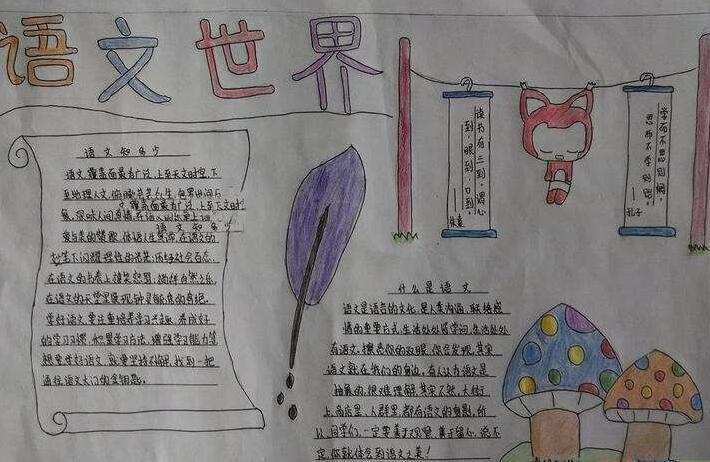 语文世界
语文知多少
语文,覆盖面最为广泛,上至天文时空,下
至地理人文,俯瞰芸芸众生,包罗世间万
象,
语文知多少
爱与美的赞歌,体语人生思
笔下闪耀理性的光芒,
在语文的书卷上搜奖
在语文的天堂里
学好语文要注重培养学习兴趣,养成好
的学习习惯,把握学习方法,增强学习能力等
想要学好语文,就要坚持不懈,找到一把
通往语文大门的金钥匙。
读书有三到,谓心
到,眼到,口到。
——朱熹
学而不思则罔,
思而不学则殆。
——孔子
什么是语文
语文是语言的文化,是人素沟通,联络感
情的重要方式,生活处处留学问,生活处处
有语文,擦亮你的双眼,你会发现,其实
语文就在我们的身边,有人认为语文是
抽象的,很难理解,其实不然,大街
上,商店里,人群里,都有语文的身影,所
以,同学们,一定要善于观察,善于留心,说不
定,你就体会到语文之美!